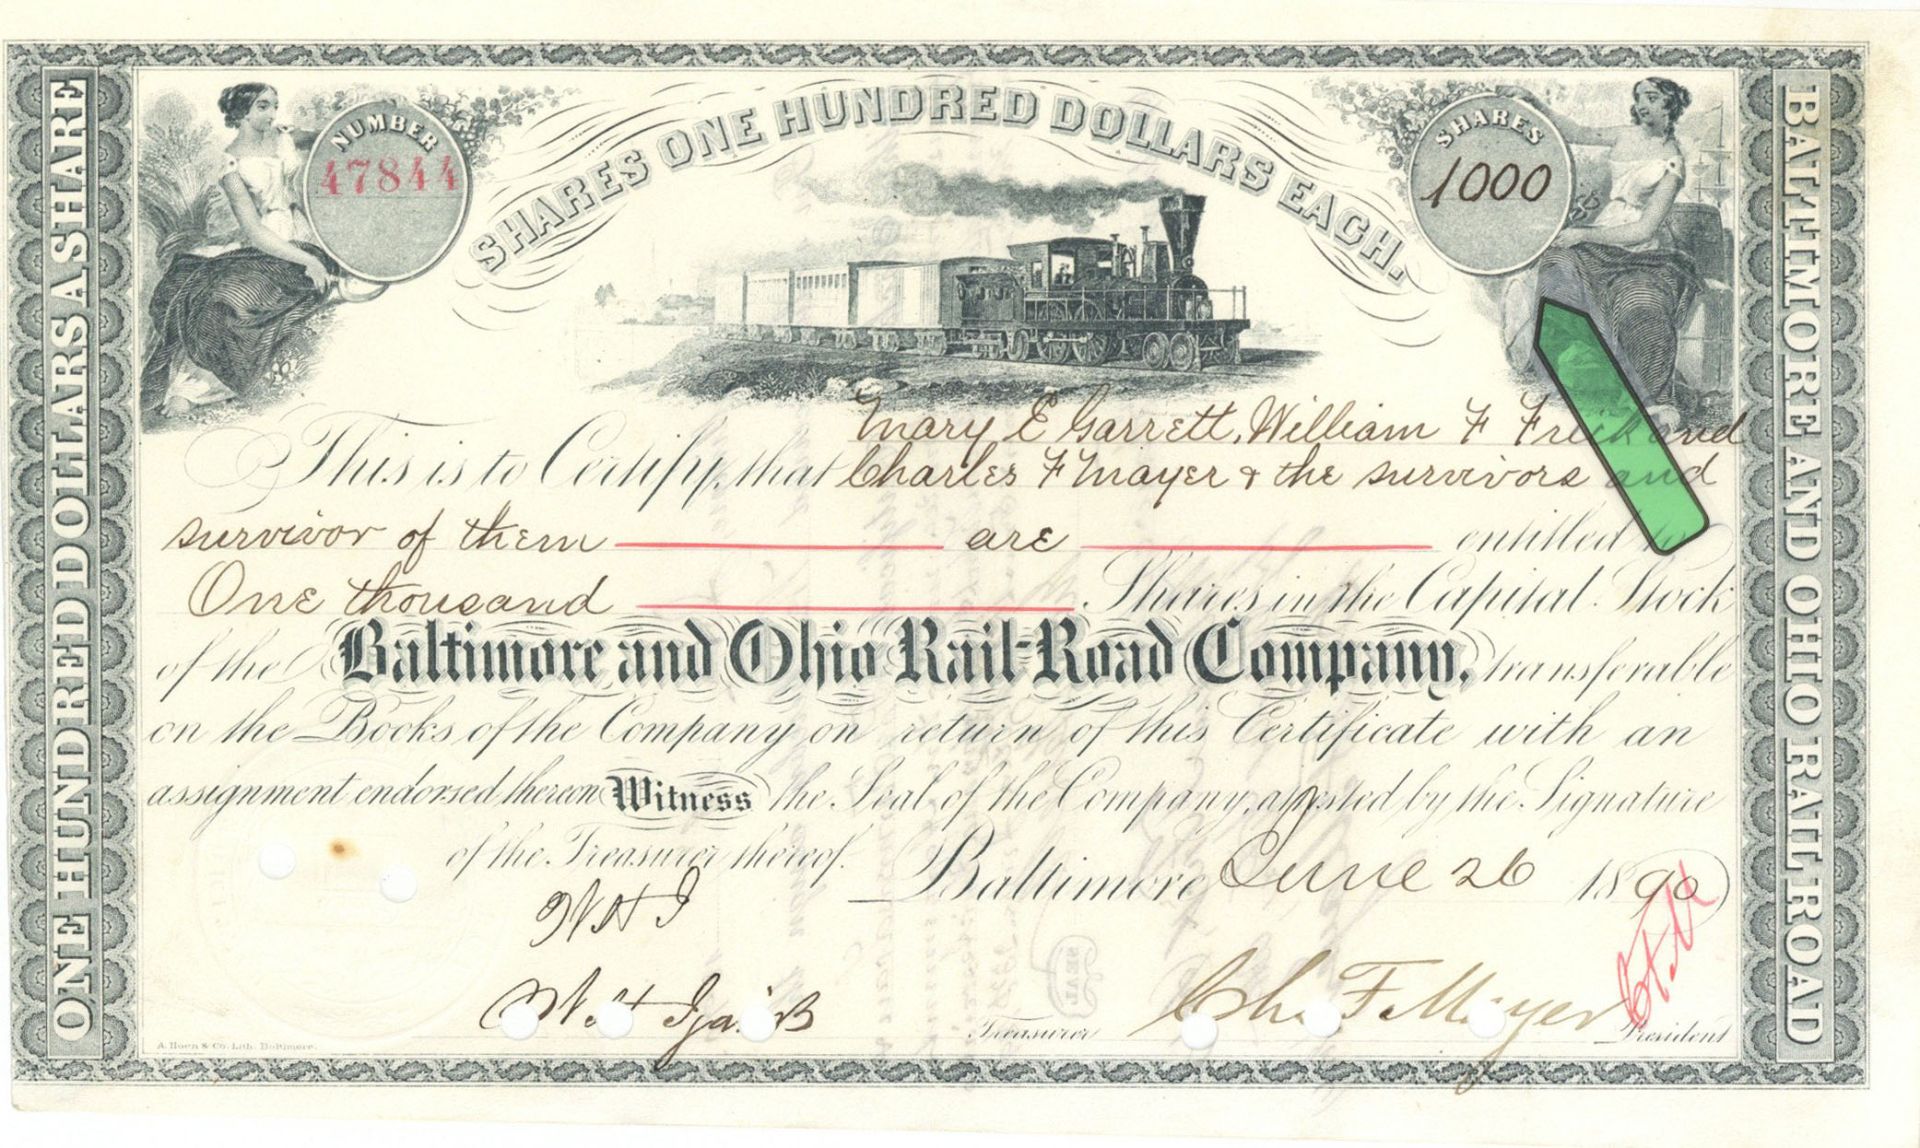 SHARES ONE HUNDRED DOLLARS EACH.
NUMBER
47844
SHARES
1000
ONE HUNDRED DOLLARS A SHARE
BALTIMORE AND OHIO RAILROAD
Mary E Garrett, William F Frick and
This is to Certify, that Charles F Mayer & the survivors and
survivor of them are entitled to
One thousand Shares in the Capital Stock
of the Baltimore and Ohio Rail-Road Company, transferable
on the Books of the Company on return of this Certificate with an
assignment endorsed thereon Witness the Seal of the Company, attested by the Signature
of the Treasurer thereof.
Baltimore June 26 1890
W H I
W H Ijams
Treasurer
Chs F Mayer
President
C F M
SEAL
A. Hoen & Co. Lith. Baltimore.